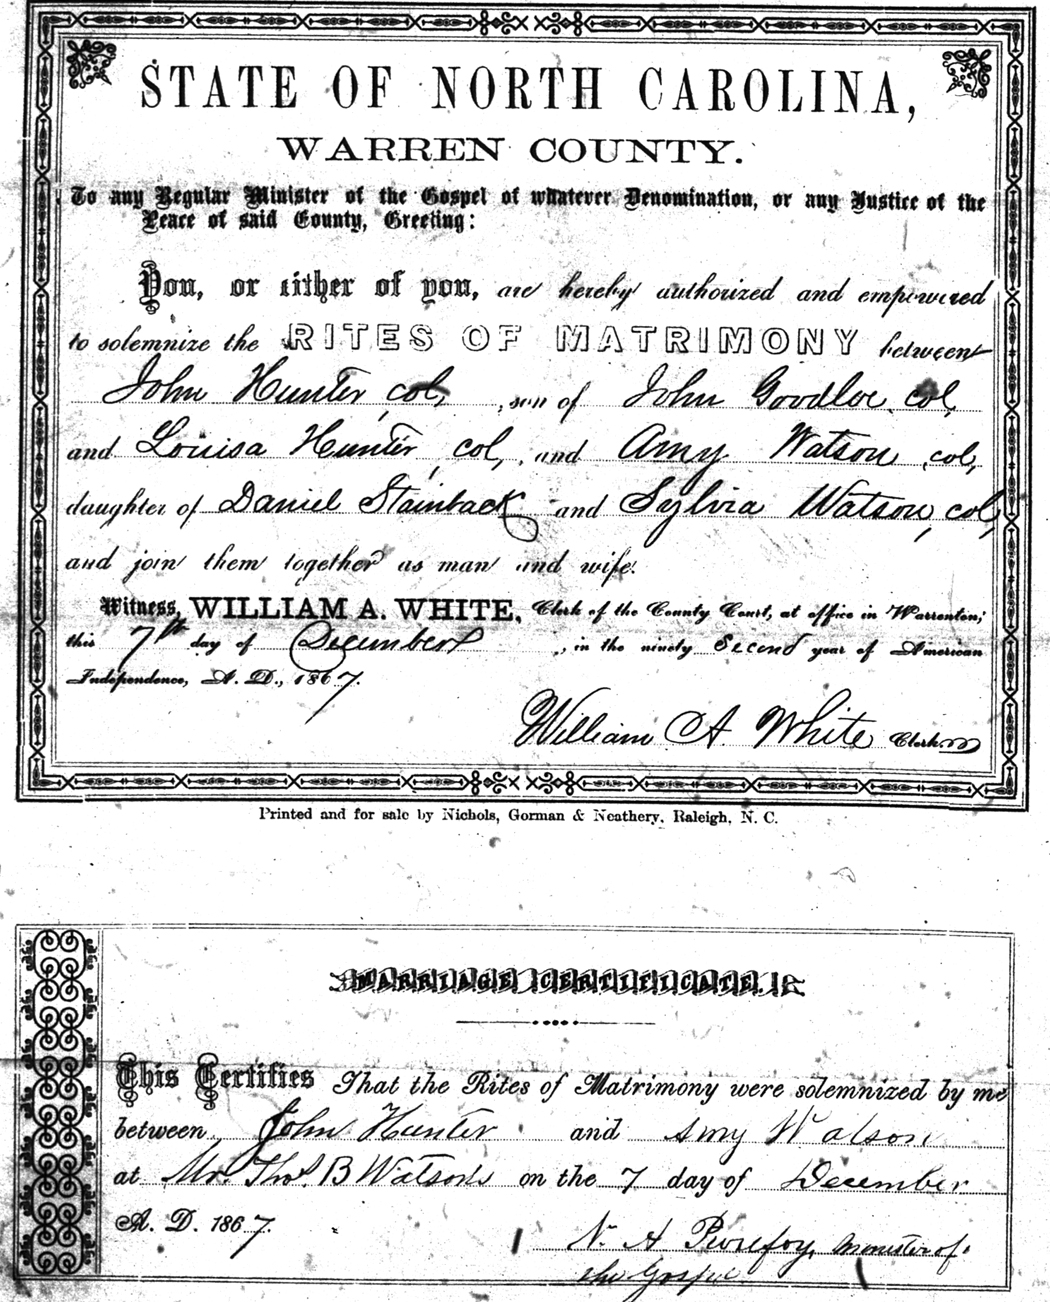 STATE OF NORTH CAROLINA,
WARREN COUNTY.
To any Regular Minister of the Gospel of whatever Denomination, or any Justice of the
Peace of said County, Greeting:
You, or either of you, are hereby authorized and empowered
to solemnize the RITES OF MATRIMONY between
John Hunter, col, , son of John Goodloe, col,
and Louisa Hunter, col, , and Amy Watson, col,
daughter of Daniel Stainback and Sylvia Watson, col,
and join them together as man and wife.
Witness, WILLIAM A. WHITE, Clerk of the County Court, at office in Warrenton,
this 7th day of December , in the ninety Second year of American
Independence, A. D., 1867.
William A. White Clerk
Printed and for sale by Nichols, Gorman & Neathery, Raleigh, N. C.
MARRIAGE CERTIFICATE.
This Certifies That the Rites of Matrimony were solemnized by me
between John Hunter and Amy Watson
at Mr. Thos. B Watsons on the 7 day of December
A. D. 1867.
N. A Purefoy, Minister of
the Gospel